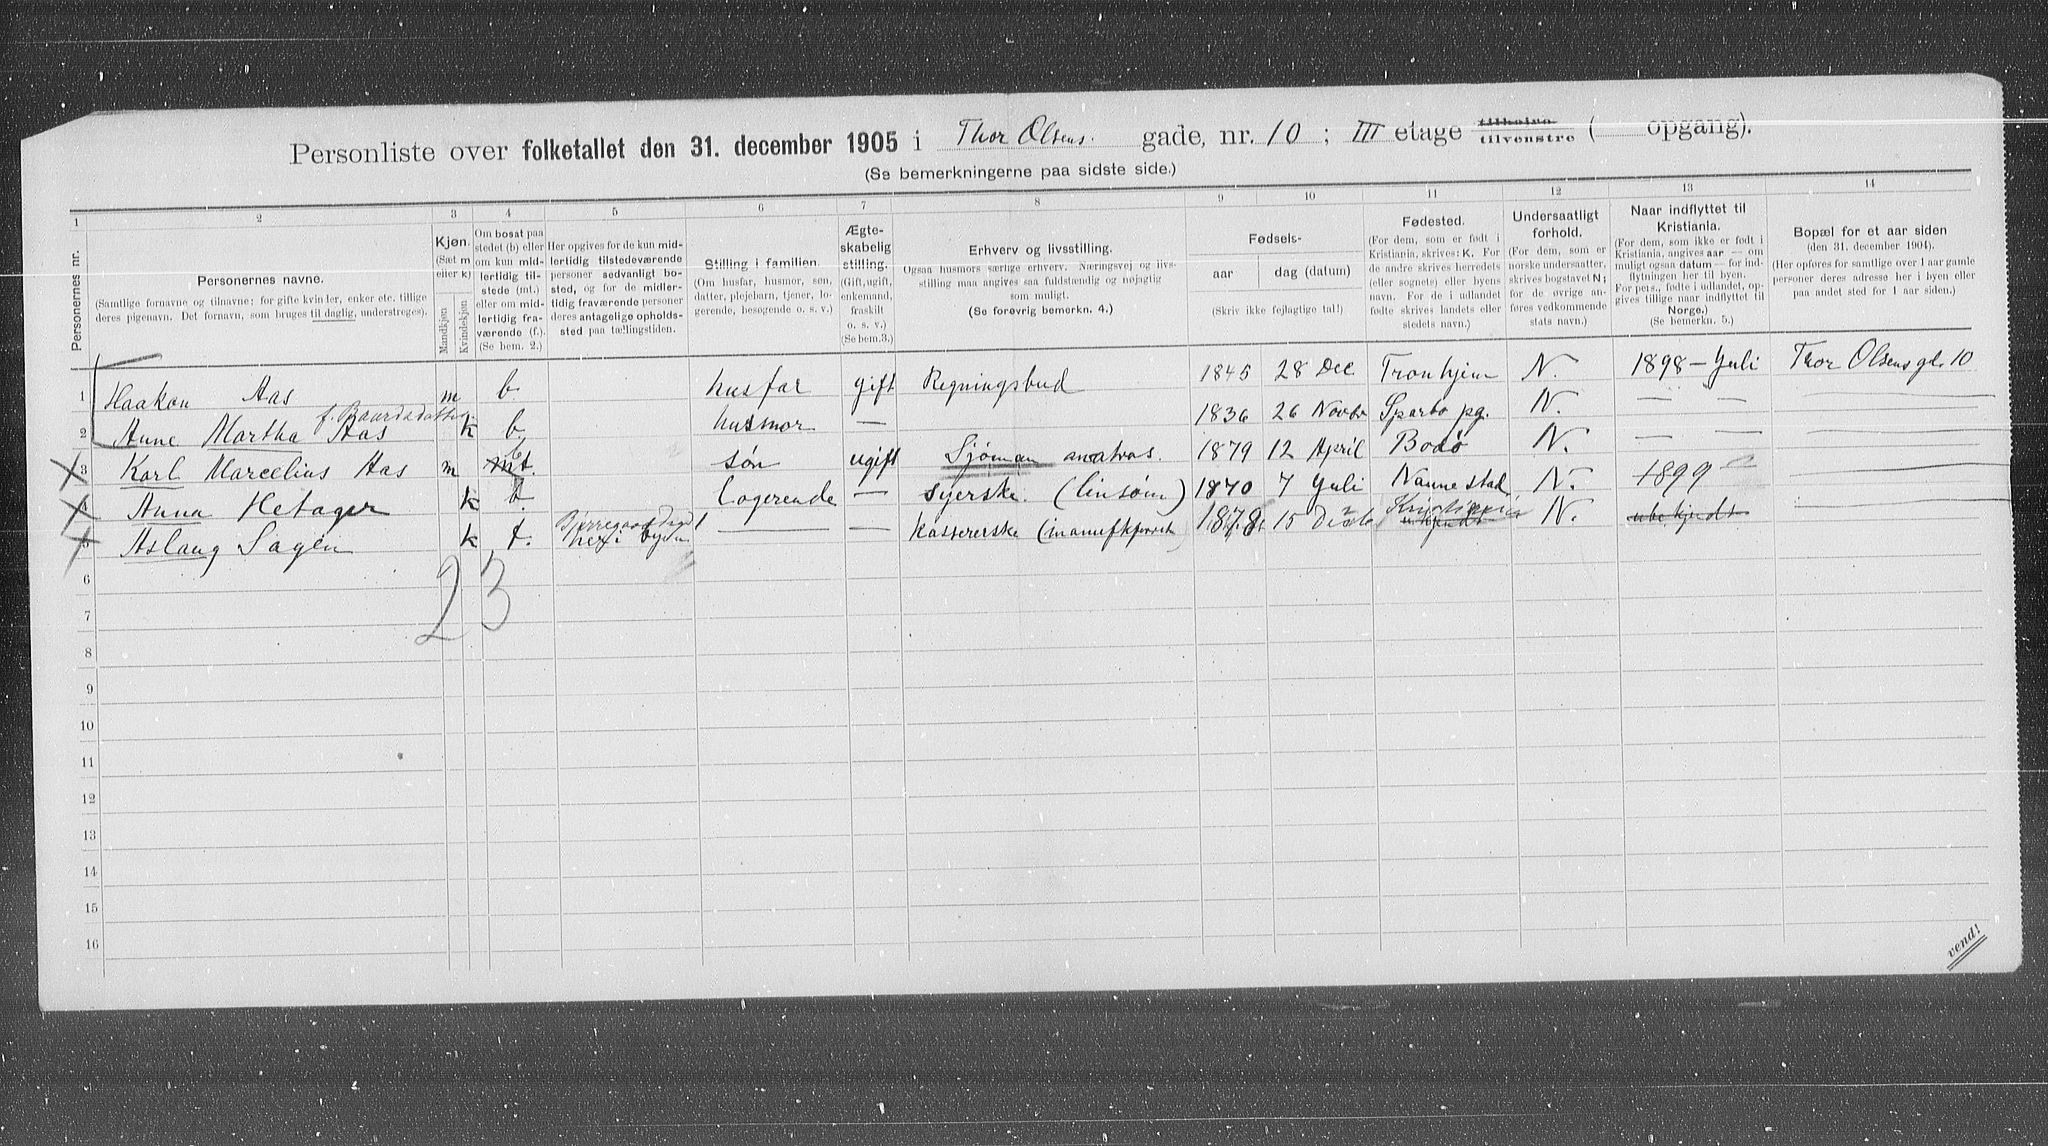 Personliste over folketallet den 31. december 1905 i Thor Olsens gade, nr. 10 ; III etage tilhøire tilvenstre ( opgang).
(Se bemerkningerne paa sidste side.)
1 2 3 4 5 6 7 8 9 10 11 12 13 14
Personernes nr.
Personernes navne.
(Samtlige fornavne og tilnavne; for gifte kvinder, enker etc. tillige
deres pigenavn. Det fornavn, som bruges til daglig, understreges).
Kjøn.
(Sæt m
eller k)
Mandkjøn
Kvindekjøn
Om bosat paa
stedet (b) eller
om kun mid-
lertidig til-
stede (mt.)
eller om mid-
lertidig fra-
værende (f.).
(Se bem. 2.)
Her opgives for de kun mid-
lertidig tilstedeværende
personer sedvanligt bo-
sted, og for de midler-
tidig fraværende personer
deres antagelige opholds-
sted paa tællingstiden.
Stilling i familien.
(Om husfar, husmor, søn,
datter, plejebarn, tjener, lo-
gerende, besøgende o. s. v.)
Ægte-
skabelig
stilling.
(Gift, ugift,
enkemand,
fraskilt
o. s. v.)
(Se bem.3.)
Erhverv og livsstilling.
Ogsaa husmors særlige erhverv. Næringsvej og livs-
stilling maa angives saa fuldstændig og nøjagtig
som muligt.
(Se forøvrig bemerkn. 4.)
Fødsels-
aar dag (datum)
(Skriv ikke fejlagtige tal!)
Fødested.
(For dem, som er født i
Kristiania, skrives: K. For
de andre skrives herredets
(eller sognets) eller byens
navn. For de i udlandet
fødte skrives landets eller
stedets navn.)
Undersaatligt
forhold.
(For dem, som er
norske undersaatter,
skrives bogstavet N;
for de øvrige an-
føres vedkommende
stats navn.)
Naar indflyttet til
Kristiania.
(For dem, som ikke er født i
Kristiania, angives aar — om
muligt ogsaa datum — for ind-
flytningen her til byen.
For pers., fødte i udlandet, op-
gives tillige naar indflyttet til
Norge.)
(Se bemerkn. 5.)
Bopæl for et aar siden
(den 31. december 1904).
(Her opføres for samtlige over 1 aar gamle
personer deres adresse her i byen eller
paa andet sted for 1 aar siden.)
1 Haakon Aas m b husfar gift Regningsbud 1845 28 Dec Tronhjem N. 1898 – Juli Thor Olsens gd. 10
f. Baardsdatter
2 Anne Martha Aas k b husmor — 1836 26 Novbr Sparbo pg. N. — —
3 Karl Marcelius Aas m mt. b søn ugift Sjøman matros. 1879 12 April Bodø N. — —
4 Anna Hetager k b. logerende — syerske. (linsøm) 1870 7 Juli Nannestad N. 1899
5 Aslaug Sagen k f. her i byen — — kassererske 1878 15 N. ubekjendt
23
6
7
8
9
10
11
12
13
14
15
16
vend!